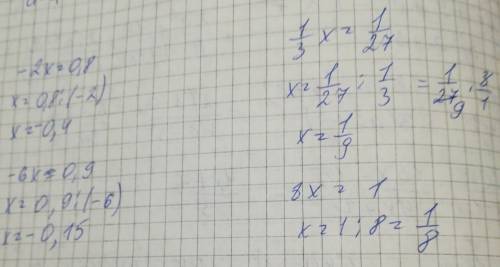 -2x=0,8
x=0,8:(-2)
x=-0,4
-6x=0,9
x=0,9:(-6)
x=-0,15
1/3 x = 1/27
x = 1/27 : 1/3 = 1/27 9 · 3/1
x = 1/9
8x = 1
x = 1 : 8 = 1/8